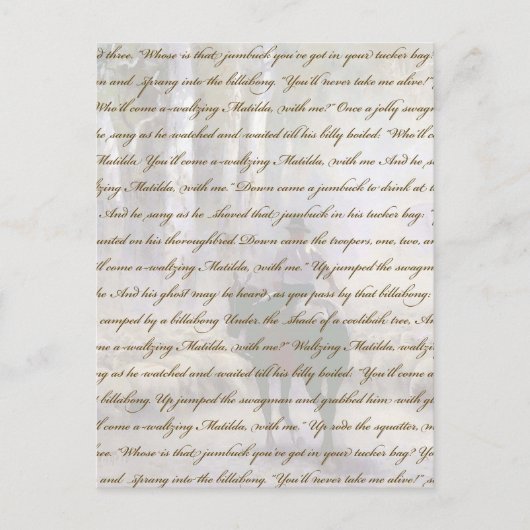 d three, "Whose is that jumbuck you've got in your tucker bag?
an and sprang into the billabong. "You'll never take me alive!"
Who'll come a-waltzing Matilda, with me?" Once a jolly swagm
he sang as he watched and waited till his billy boiled: "Who'll co
Matilda You'll come a-waltzing Matilda, with me And he s
altzing Matilda, with me." Down came a jumbuck to drink at t
And he sang as he shoved that jumbuck in his tucker bag: "
unted on his thoroughbred. Down came the troopers, one, two, an
ll come a-waltzing Matilda, with me." Up jumped the swagman
he And his ghost may be heard, as you pass by that billabong:
camped by a billabong Under the shade of a coolibah tree, And
ome a-waltzing Matilda, with me?" Waltzing Matilda, waltzi
ng as he watched and waited till his billy boiled: "You'll come a
billabong. Up jumped the swagman and grabbed him with gl
ll come a-waltzing Matilda, with me." Up rode the squatter, m
ree. "Whose is that jumbuck you've got in your tucker bag? Yo
and sprang into the billabong. "You'll never take me alive!" s